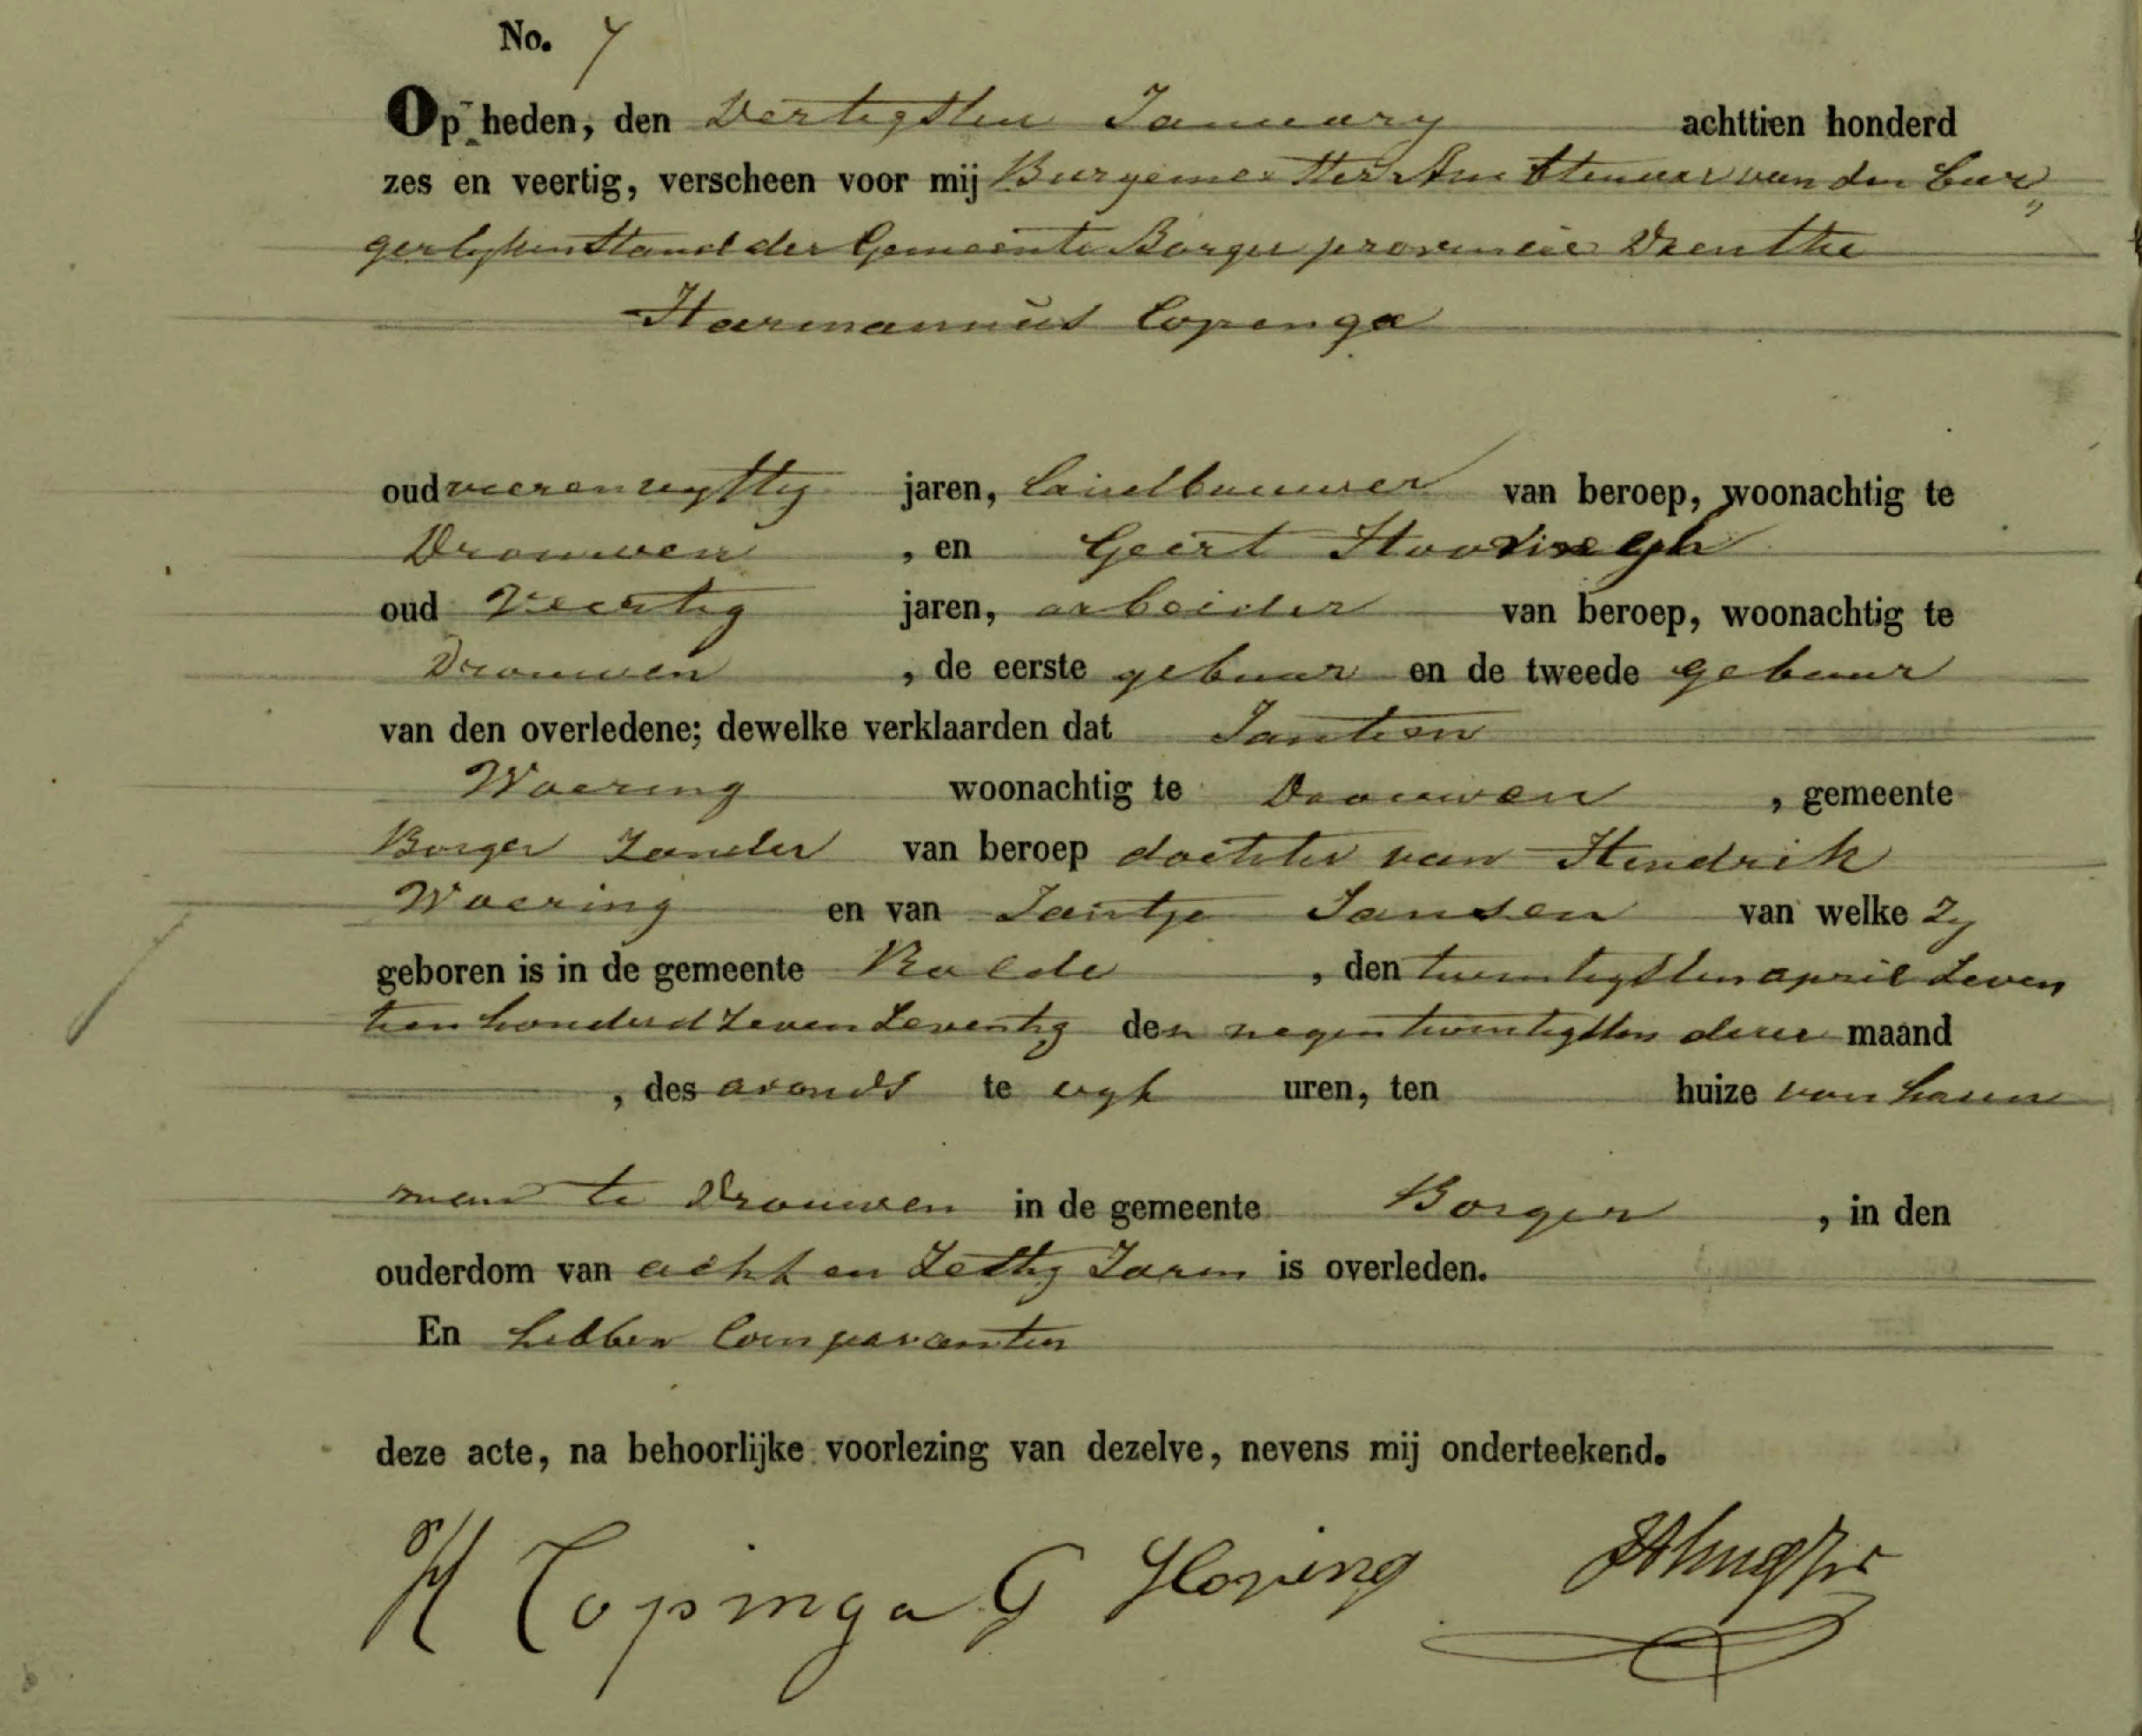 No. 7
Op heden, den Dertigsten January achttien honderd
zes en veertig, verscheen voor mij Burgemeester Amtenaar van den Bur„
gerlyken Stand der Gemeente Borger provincie Drenthe
Harmannus Copinga
oud vierenvyftig jaren, landbouwer van beroep, woonachtig te
Drouwen , en Geert
oud Veertig jaren, arbeider van beroep, woonachtig te
Drouwen , de eerste gebuur en de tweede gebuur
van den overledene; dewelke verklaarden dat Jantien
Woering woonachtig te Drouwen , gemeente
Borger Zonder van beroep dochter van Hendrik
Woering en van Jantje Jansen van welke Zy
geboren is in de gemeente Rolde , den twintigsten april Zeven
tien honderd Zeven Zeventig den negentwintigsten dezer maand
, des avonds te agt uren, ten huize van haar
man te Drouwen in de gemeente Borger , in den
ouderdom van acht en Zestig Jaren is overleden.
En hebben Comparanten
deze acte, na behoorlijke voorlezing van dezelve, nevens mij onderteekend.
H Copinga G Hoving